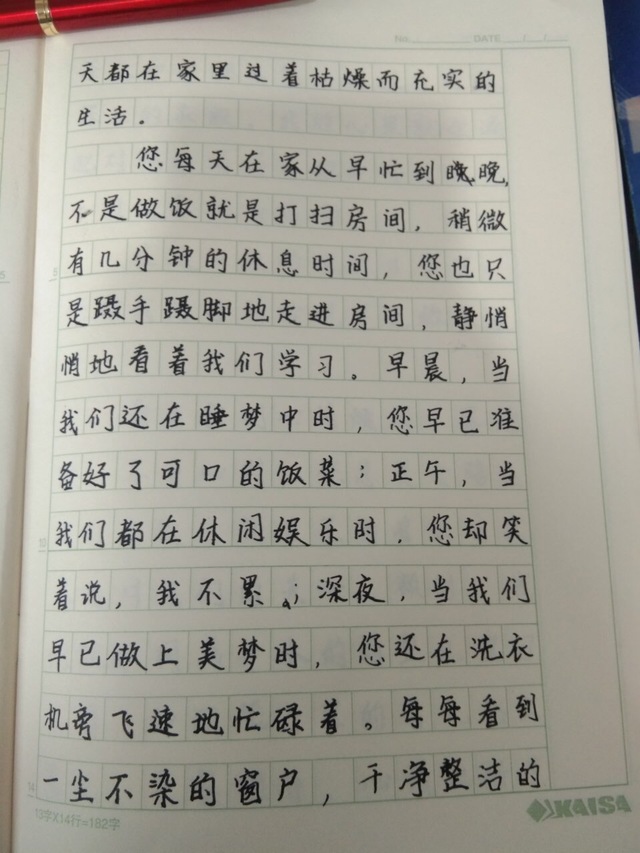 No. DATE / /
天都在家里过着枯燥而充实的
生活。
您每天在家从早忙到晚,
不是做饭就是打扫房间，稍微
有几分钟的休息时间，您也只
是蹑手蹑脚地走进房间，静悄
悄地看着我们学习。早晨，当
我们还在睡梦中时，您早已准
备好了可口的饭菜；正午，当
我们都在休闲娱乐时，您却笑
着说，我不累。；深夜，当我们
早已做上美梦时，您还在洗衣
机旁飞速地忙碌着。每每看到
一尘不染的窗户，干净整洁的
13字X14行=182字
KAISA